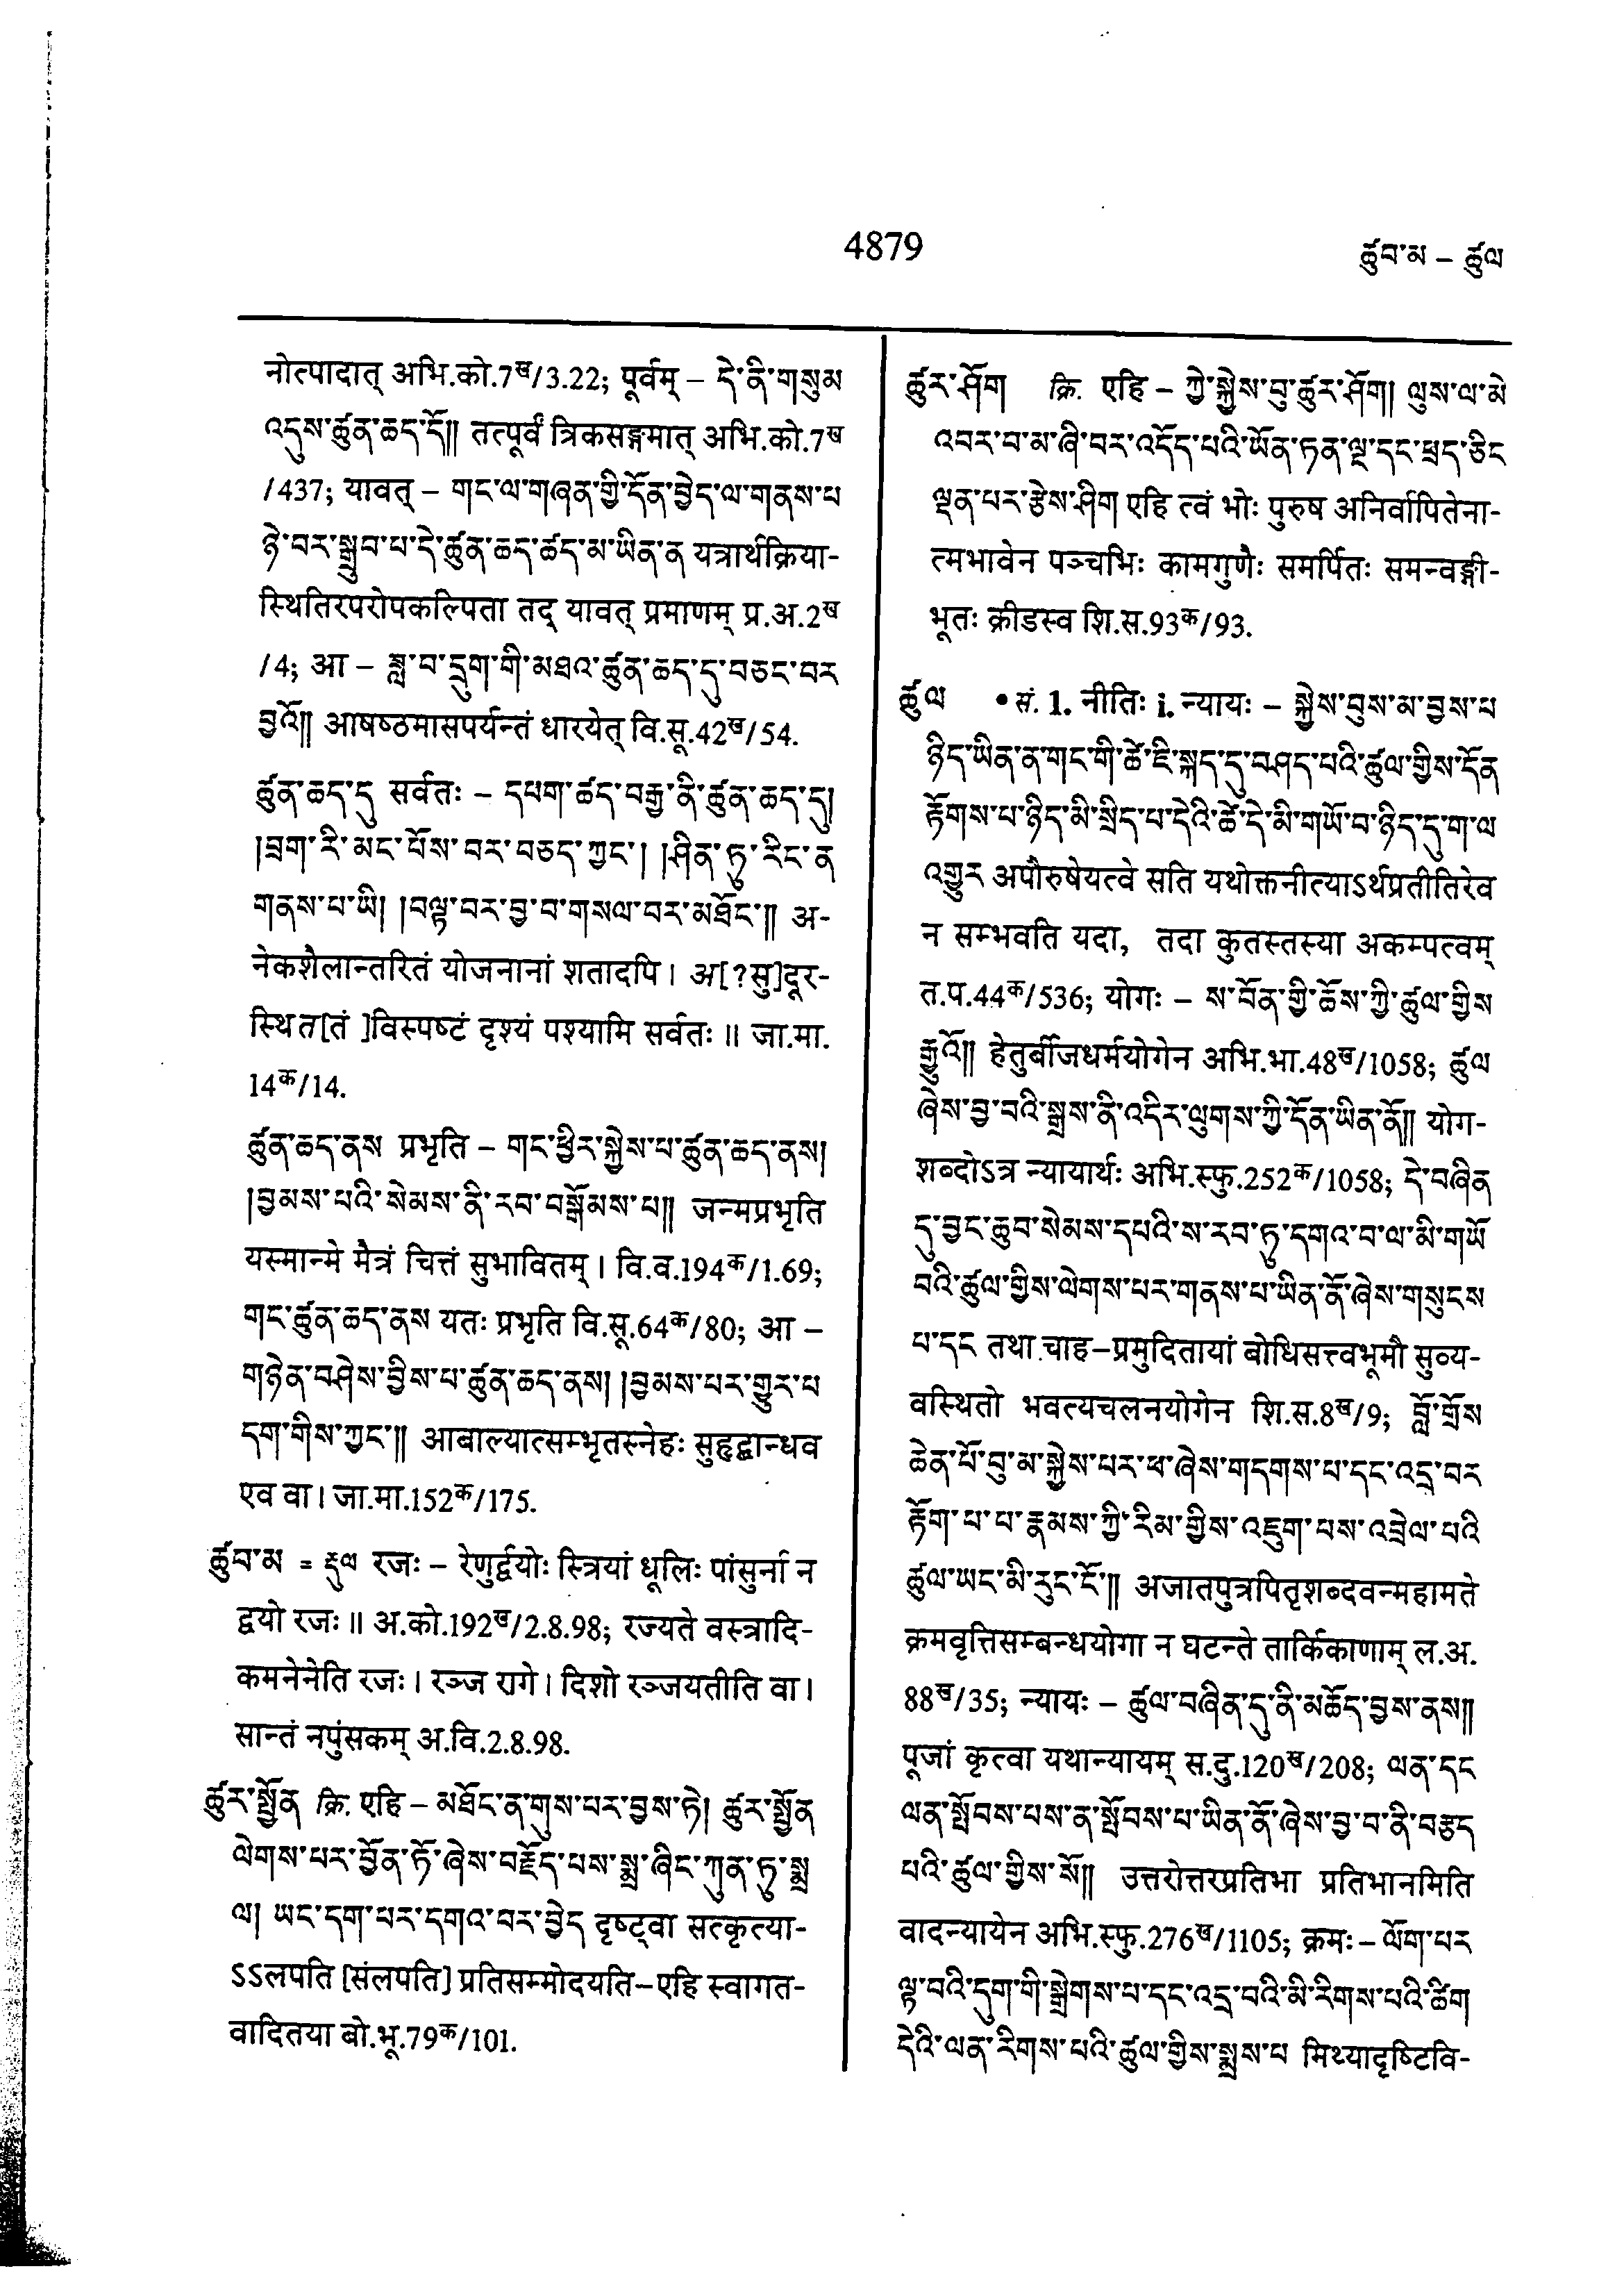 4879
ཚུབ་མ – ཚུལ
नोत्पादात् अभि.को.7ख/3.22; पूर्वम् – དེ་ནི་གསུམ
འདུས་ཚུན་ཆད་དོ།། तत्पूर्वं त्रिकसङ्गमात् अभि.को.7ख
/437; यावत् – གང་ལ་གཞན་གྱི་དོན་བྱེད་ལ་གནས་པ
ཉེ་བར་སྒྲུབ་པ་དེ་ཚུན་ཆད་ཚད་མ་ཡིན་ན यत्रार्थक्रिया-
स्थितिरपरोपकल्पिता तद् यावत् प्रमाणम् प्र.अ.2ख
/4; आ – ཟླ་བ་དྲུག་གི་མཐའ་ཚུན་ཆད་དུ་བཅང་བར
བྱའོ།། आषष्ठमासपर्यन्तं धारयेत् वि.सू.42ख/54.
ཚུན་ཆད་དུ सर्वतः – དཔག་ཚད་བརྒྱ་ནི་ཚུན་ཆད་དུ།
།བྲག་རི་མང་པོས་བར་བཅད་ཀྱང་། །ཤིན་ཏུ་རིང་ན
གནས་པ་ཡི། །བལྟ་བར་བྱ་བ་གསལ་བར་མཐོང་།། अ-
नेकशैलान्तरितं योजनानां शतादपि। अ[?सु]दूर-
स्थित[तं ]विस्पष्टं दृश्यं पश्यामि सर्वतः॥ जा.मा.
14क/14.
ཚུན་ཆད་ནས प्रभृति – གང་ཕྱིར་སྐྱེས་པ་ཚུན་ཆད་ནས།
།བྱམས་པའི་སེམས་ནི་རབ་བསྒོམས་པ།། जन्मप्रभृति
यस्मान्मे मैत्रं चित्तं सुभावितम्। वि.व.194क/1.69;
གང་ཚུན་ཆད་ནས यतः प्रभृति वि.सू.64क/80; आ –
གཉེན་བཤེས་བྱིས་པ་ཚུན་ཆད་ནས། །བྱམས་པར་གྱུར་པ
དག་གིས་ཀྱང་།། आबाल्यात्सम्भृतस्नेहः सुहृद्बान्धव
एव वा। जा.मा.152क/175.
ཚུབ་མ = རྡུལ रजः – रेणुर्द्वयोः स्त्रियां धूलिः पांसुर्ना न
द्वयो रजः॥ अ.को.192ख/2.8.98; रज्यते वस्त्रादि-
कमनेनेति रजः। रञ्ज रागे। दिशो रञ्जयतीति वा।
सान्तं नपुंसकम् अ.वि.2.8.98.
ཚུར་སྤྱོན क्रि. एहि – མཐོང་ན་གུས་པར་བྱས་ཏེ། ཚུར་སྤྱོན
ལེགས་པར་བྱོན་ཏོ་ཞེས་བརྗོད་པས་སྨྲ་ཞིང་ཀུན་ཏུ་སྨྲ
ལ། ཡང་དག་པར་དགའ་བར་བྱེད दृष्ट्वा सत्कृत्या-
ऽऽलपति [संलपति] प्रतिसम्मोदयति–एहि स्वागत-
वादितया बो.भू.79क/101.
ཚུར་ཤོག क्रि. एहि – ཀྱེ་སྐྱེས་བུ་ཚུར་ཤོག། ལུས་ལ་མེ
འབར་བ་མ་ཞི་བར་འདོད་པའི་ཡོན་ཏན་ལྔ་དང་ཕྲད་ཅིང
ལྡན་པར་རྩེས་ཤིག एहि त्वं भोः पुरुष अनिर्वापितेना-
त्मभावेन पञ्चभिः कामगुणैः समर्पितः समन्वङ्गी-
भूतः क्रीडस्व शि.स.93क/93.
ཚུལ • सं. 1. नीतिः i. न्यायः – སྐྱེས་བུས་མ་བྱས་པ
ཉིད་ཡིན་ན་གང་གི་ཚེ་ཇི་སྐད་དུ་བཤད་པའི་ཚུལ་གྱིས་དོན
རྟོགས་པ་ཉིད་མི་སྲིད་པ་དེའི་ཚེ་དེ་མི་གཡོ་བ་ཉིད་དུ་ག་ལ
འགྱུར अपौरुषेयत्वे सति यथोक्तनीत्याऽर्थप्रतीतिरेव
न सम्भवति यदा, तदा कुतस्तस्या अकम्पत्वम्
त.प.44क/536; योगः – ས་བོན་གྱི་ཆོས་ཀྱི་ཚུལ་གྱིས
རྒྱུའོ།། हेतुर्बीजधर्मयोगेन अभि.भा.48ख/1058; ཚུལ
ཞེས་བྱ་བའི་སྒྲས་ནི་འདིར་ལུགས་ཀྱི་དོན་ཡིན་ནོ།། योग-
शब्दोऽत्र न्यायार्थः अभि.स्फु.252क/1058; དེ་བཞིན
དུ་བྱང་ཆུབ་སེམས་དཔའི་ས་རབ་ཏུ་དགའ་བ་ལ་མི་གཡོ
བའི་ཚུལ་གྱིས་ལེགས་པར་གནས་པ་ཡིན་ནོ་ཞེས་གསུངས
པ་དང तथा चाह–प्रमुदितायां बोधिसत्त्वभूमौ सुव्य-
वस्थितो भवत्यचलनयोगेन शि.स.8ख/9; བློ་གྲོས
ཆེན་པོ་བུ་མ་སྐྱེས་པར་ཕ་ཞེས་གདགས་པ་དང་འདྲ་བར
རྟོག་པ་པ་རྣམས་ཀྱི་རིམ་གྱིས་འཇུག་པས་འབྲེལ་པའི
ཚུལ་ཡང་མི་རུང་ངོ་།། अजातपुत्रपितृशब्दवन्महामते
क्रमवृत्तिसम्बन्धयोगा न घटन्ते तार्किकाणाम् ल.अ.
88ख/35; न्यायः – ཚུལ་བཞིན་དུ་ནི་མཆོད་བྱས་ནས།།
पूजां कृत्वा यथान्यायम् स.दु.120ख/208; ལན་དང
ལན་སྤོབས་པས་ན་སྤོབས་པ་ཡིན་ནོ་ཞེས་བྱ་བ་ནི་བརྩད
པའི་ཚུལ་གྱིས་སོ།། उत्तरोत्तरप्रतिभा प्रतिभानमिति
वादन्यायेन अभि.स्फु.276ख/1105; क्रमः – ལོག་པར
ལྟ་བའི་དུག་གི་སྒྲེགས་པ་དང་འདྲ་བའི་མི་རིགས་པའི་ཚིག
དེའི་ལན་རིགས་པའི་ཚུལ་གྱིས་སྨྲས་པ मिथ्यादृष्टिवि-